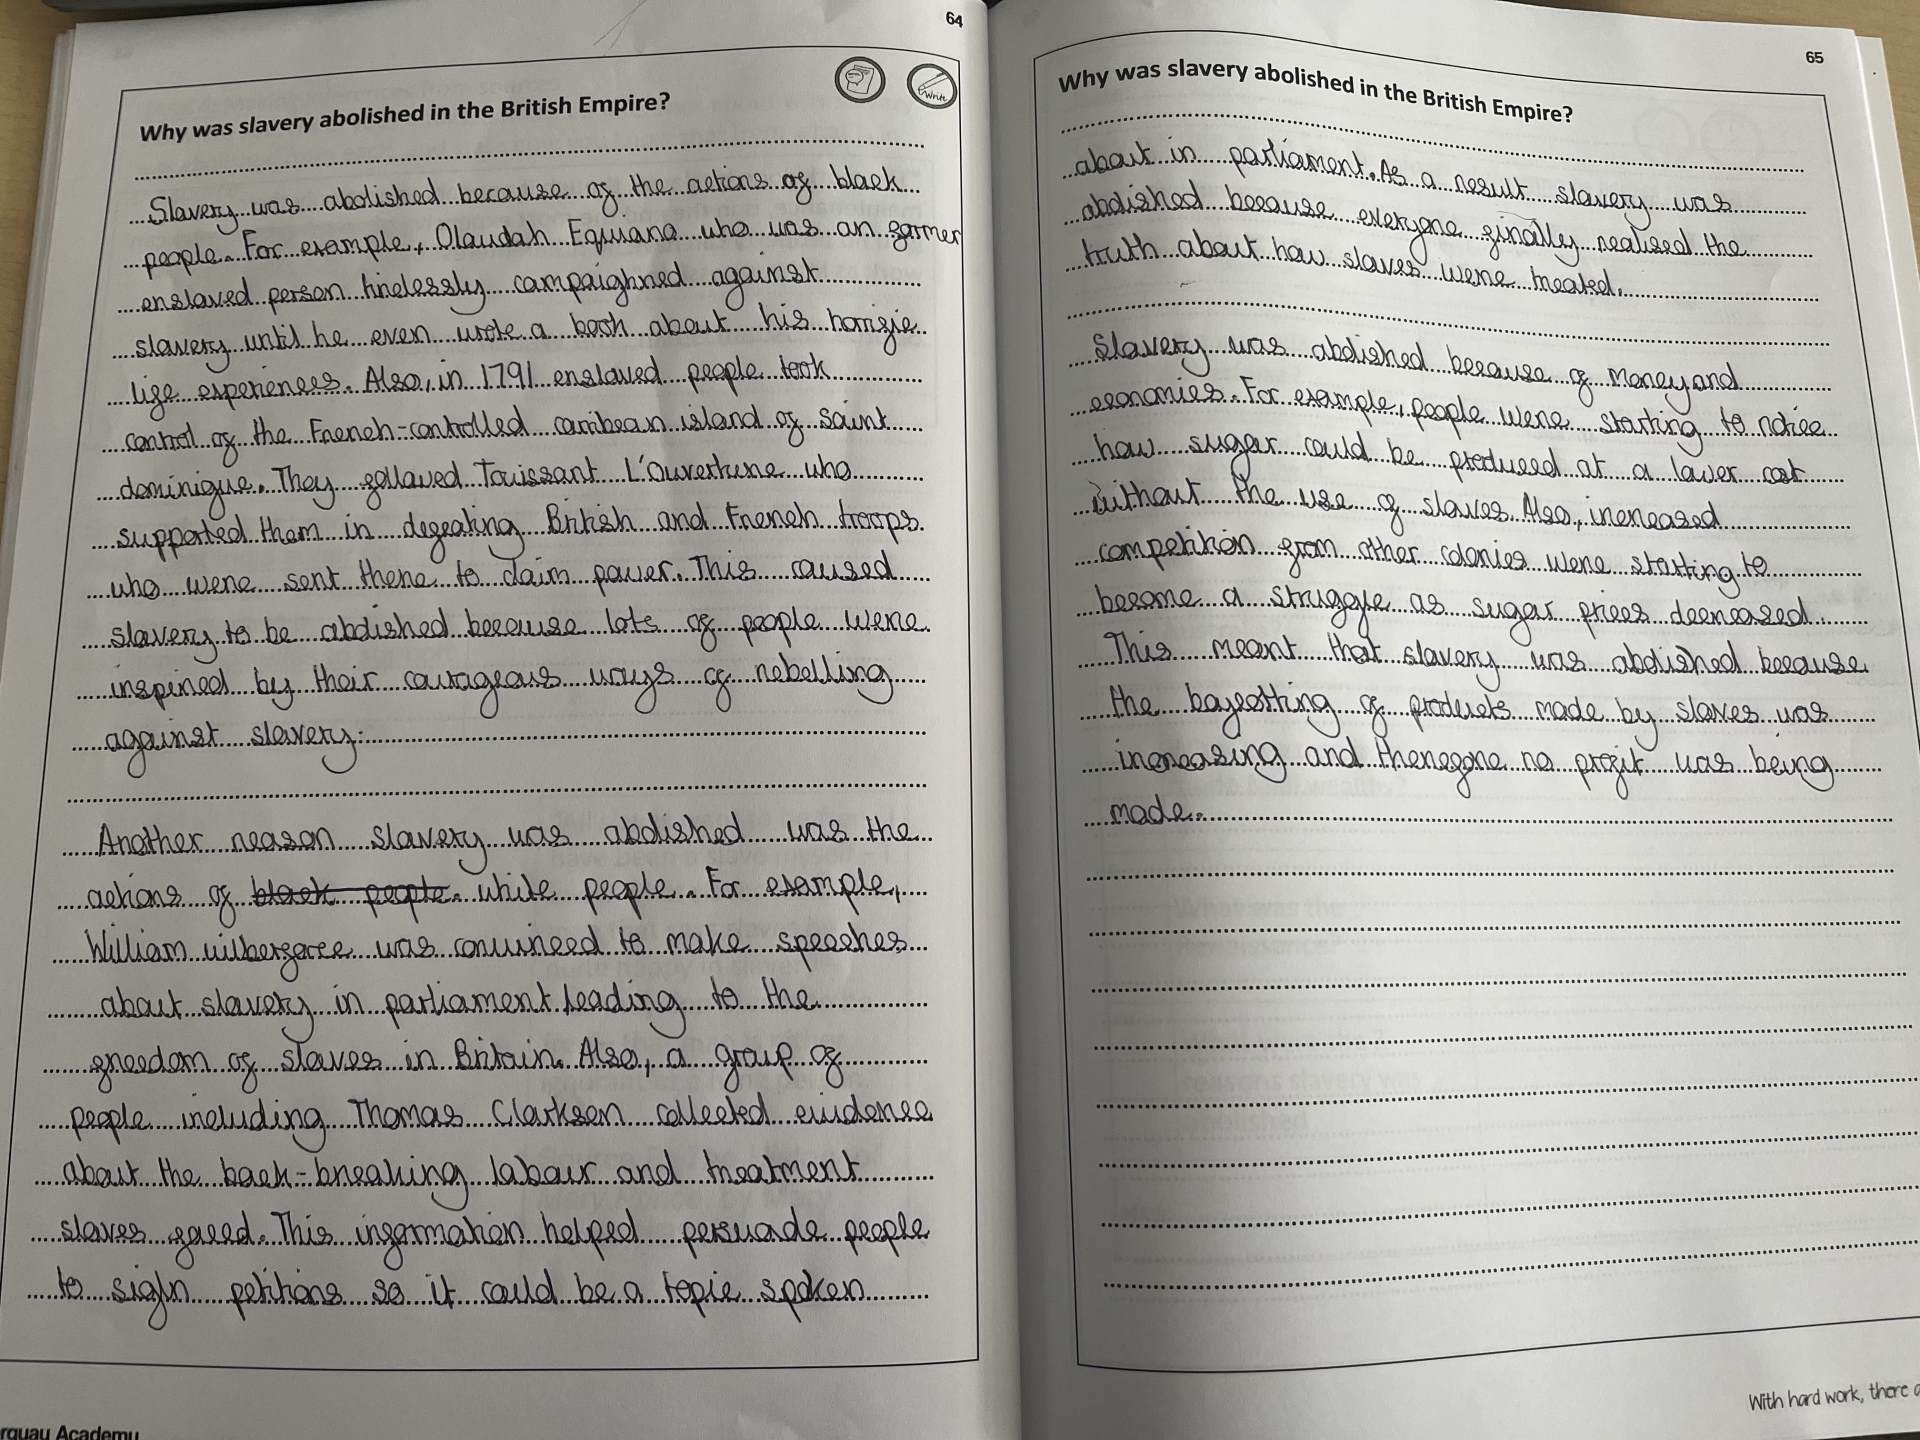 64
Why was slavery abolished in the British Empire?
Write
Slavery was abolished because of the actions of black
people. For example, Olaudah Equiano who was an former
enslaved person tirelessly campaighned against
slavery until he even wrote a book about his horrific
life experiences. Also, in 1791 enslaved people took
control of the French-controlled carribean island of Saint
dominique. They followed Touissant L'Ouverture who
supported them in defeating British and French troops
who were sent there to claim power. This caused
slavery to be abolished because lots of people were
inspired by their courageous ways of rebelling
against slavery.
Another reason slavery was abolished was the
actions of black people. white people. For example,
William wilberforce was convinced to make speeches
about slavery in parliament leading to the
freedom of slaves in Britain. Also, a group of
people including Thomas Clarkson collected evidence
about the back-breaking labour and treatment
slaves faced. This information helped persuade people
to sign petitions so it could be a topic spoken
rquay Academy
65
Why was slavery abolished in the British Empire?
about in parliament. As a result slavery was
abolished because everyone finally realised the
truth about how slaves were treated.
Slavery was abolished because of money and
economies. For example, people were starting to notice
how sugar could be produced at a lower cost
without the use of slaves. Also, increased
competition from other colonies were starting to
become a struggle as sugar prices decreased.
This meant that slavery was abolished because
the boycotting of products made by slaves was
increasing and therefore no profit was being
made.
With hard work, there